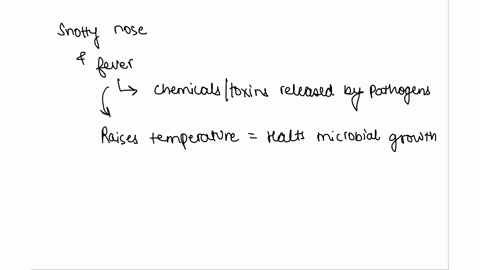 Snotty nose
& fever
↳ Chemicals/toxins released by Pathogens
Raises temperature = Halts microbial growth